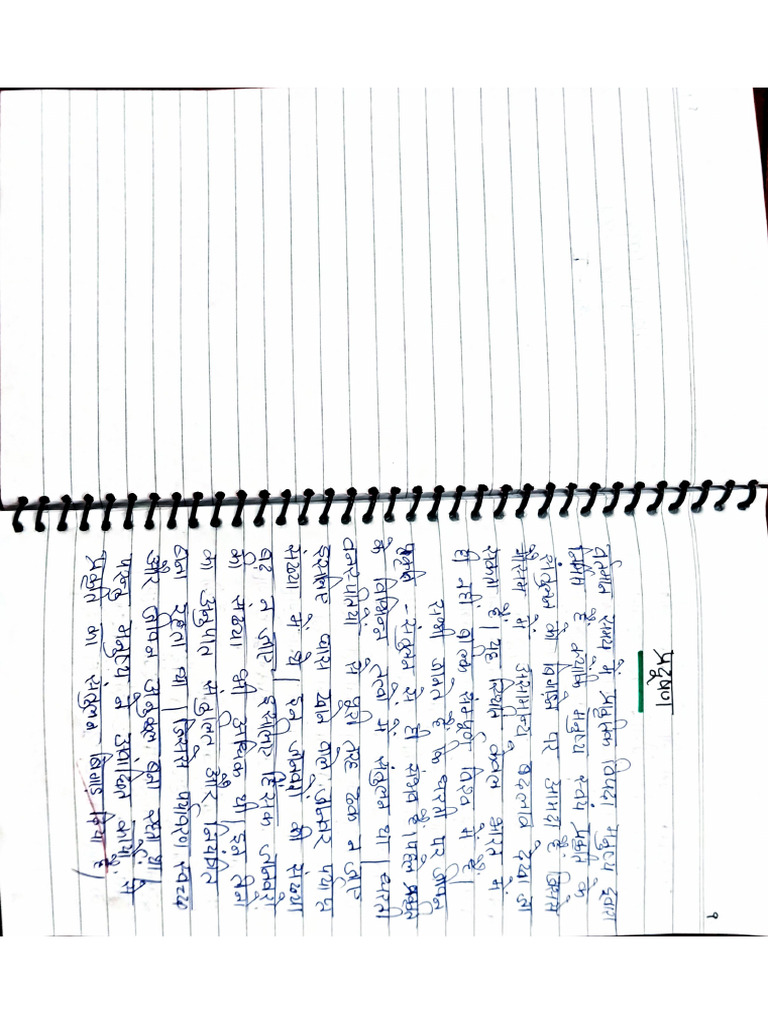 १
प्रदूषण
वर्तमान समय में प्राकृतिक विपदा मनुष्य द्वारा
निर्मित है क्योंकि मनुष्य स्वयं प्रकृति के
संतुलन को बिगाड़ने पर आमादा है जिससे
मौसम में असामान्य बदलाव देखा जा
सकता है। यह स्थिति केवल भारत में
ही नहीं बल्कि सम्पूर्ण विश्व में है।
सभी जानते है कि धरती पर जीवन
प्रकृति-संतुलन से ही संभव है। पहले प्रकृति
के विभिन्न तत्वों में संतुलन था। धरती
वनस्पतियों से पूरी तरह ढक न जाए
इसलिए घास खाने वाले जानवर पर्याप्त
संख्या में थे। इन जानवरों की संख्या
बढ़ न जाए इसलिए हिंसक जानवरों
की संख्या भी अधिक थी। इन तीनों
का अनुपात संतुलित और नियंत्रित
बना रहता था। जिससे पर्यावरण स्वच्छ
और जीवन अनुकूल बना रहता था।
परन्तु मनुष्य ने उपरोक्त कार्यों से
प्रकृति का संतुलन बिगाड़ दिया है।